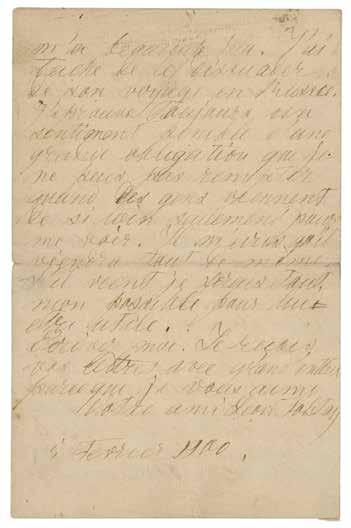 m'a beaucoup plu. J'ai
taché de le dissuader
de son voyage en Russie.
J'éprouve toujours un
sentiment pénible d'une
grande obligation que je
ne puis pas remplir
quand des gens viennent
de si loin seulement pour
me voir. Je m'
viendra tout de même
S'il vient je ferais tout
mon possible pour lui
être utile.
Ecrivez moi. Je reçois
vos lettres avec grand
parce que je vous aime
Votre ami Léon Tolstoy
5 Fevrier 1900.